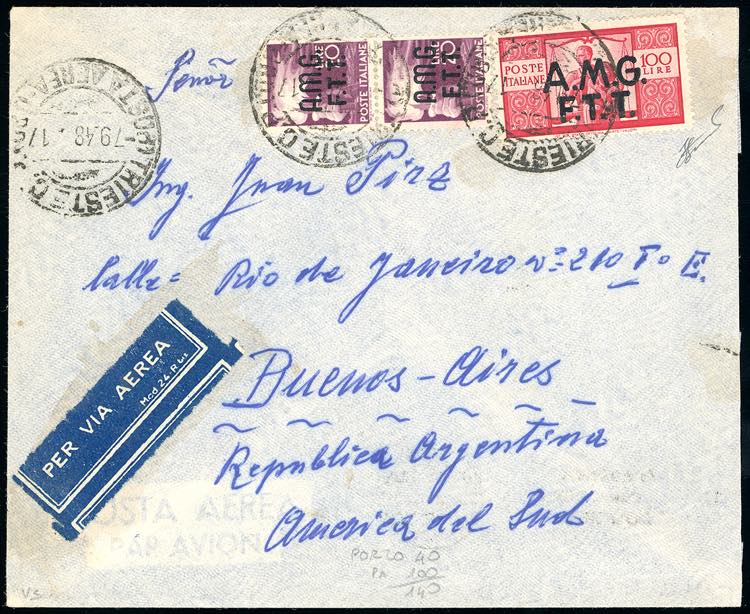 A.M.G.
F.T.T.
LIRE 20
POSTE ITALIANE
A.M.G.
F.T.T.
LIRE 20
POSTE ITALIANE
POSTE
ITALIANE
100
LIRE
A.M.G.
F.T.T.
TRIESTE C.
POSTA AEREA
7 9 48 . 17
TRIESTE C.
TRIESTE C.
Señor
Ing. Juan Pirz
Calle= Rio de Janeiro nº=210 Iº E.
Buenos-Aires
Republica Argentina
America del Sud
PER VIA AEREA
Mod. 24-R bis
POSTA AEREA
PAR AVION
PORTO 40
PA 100
140
VS